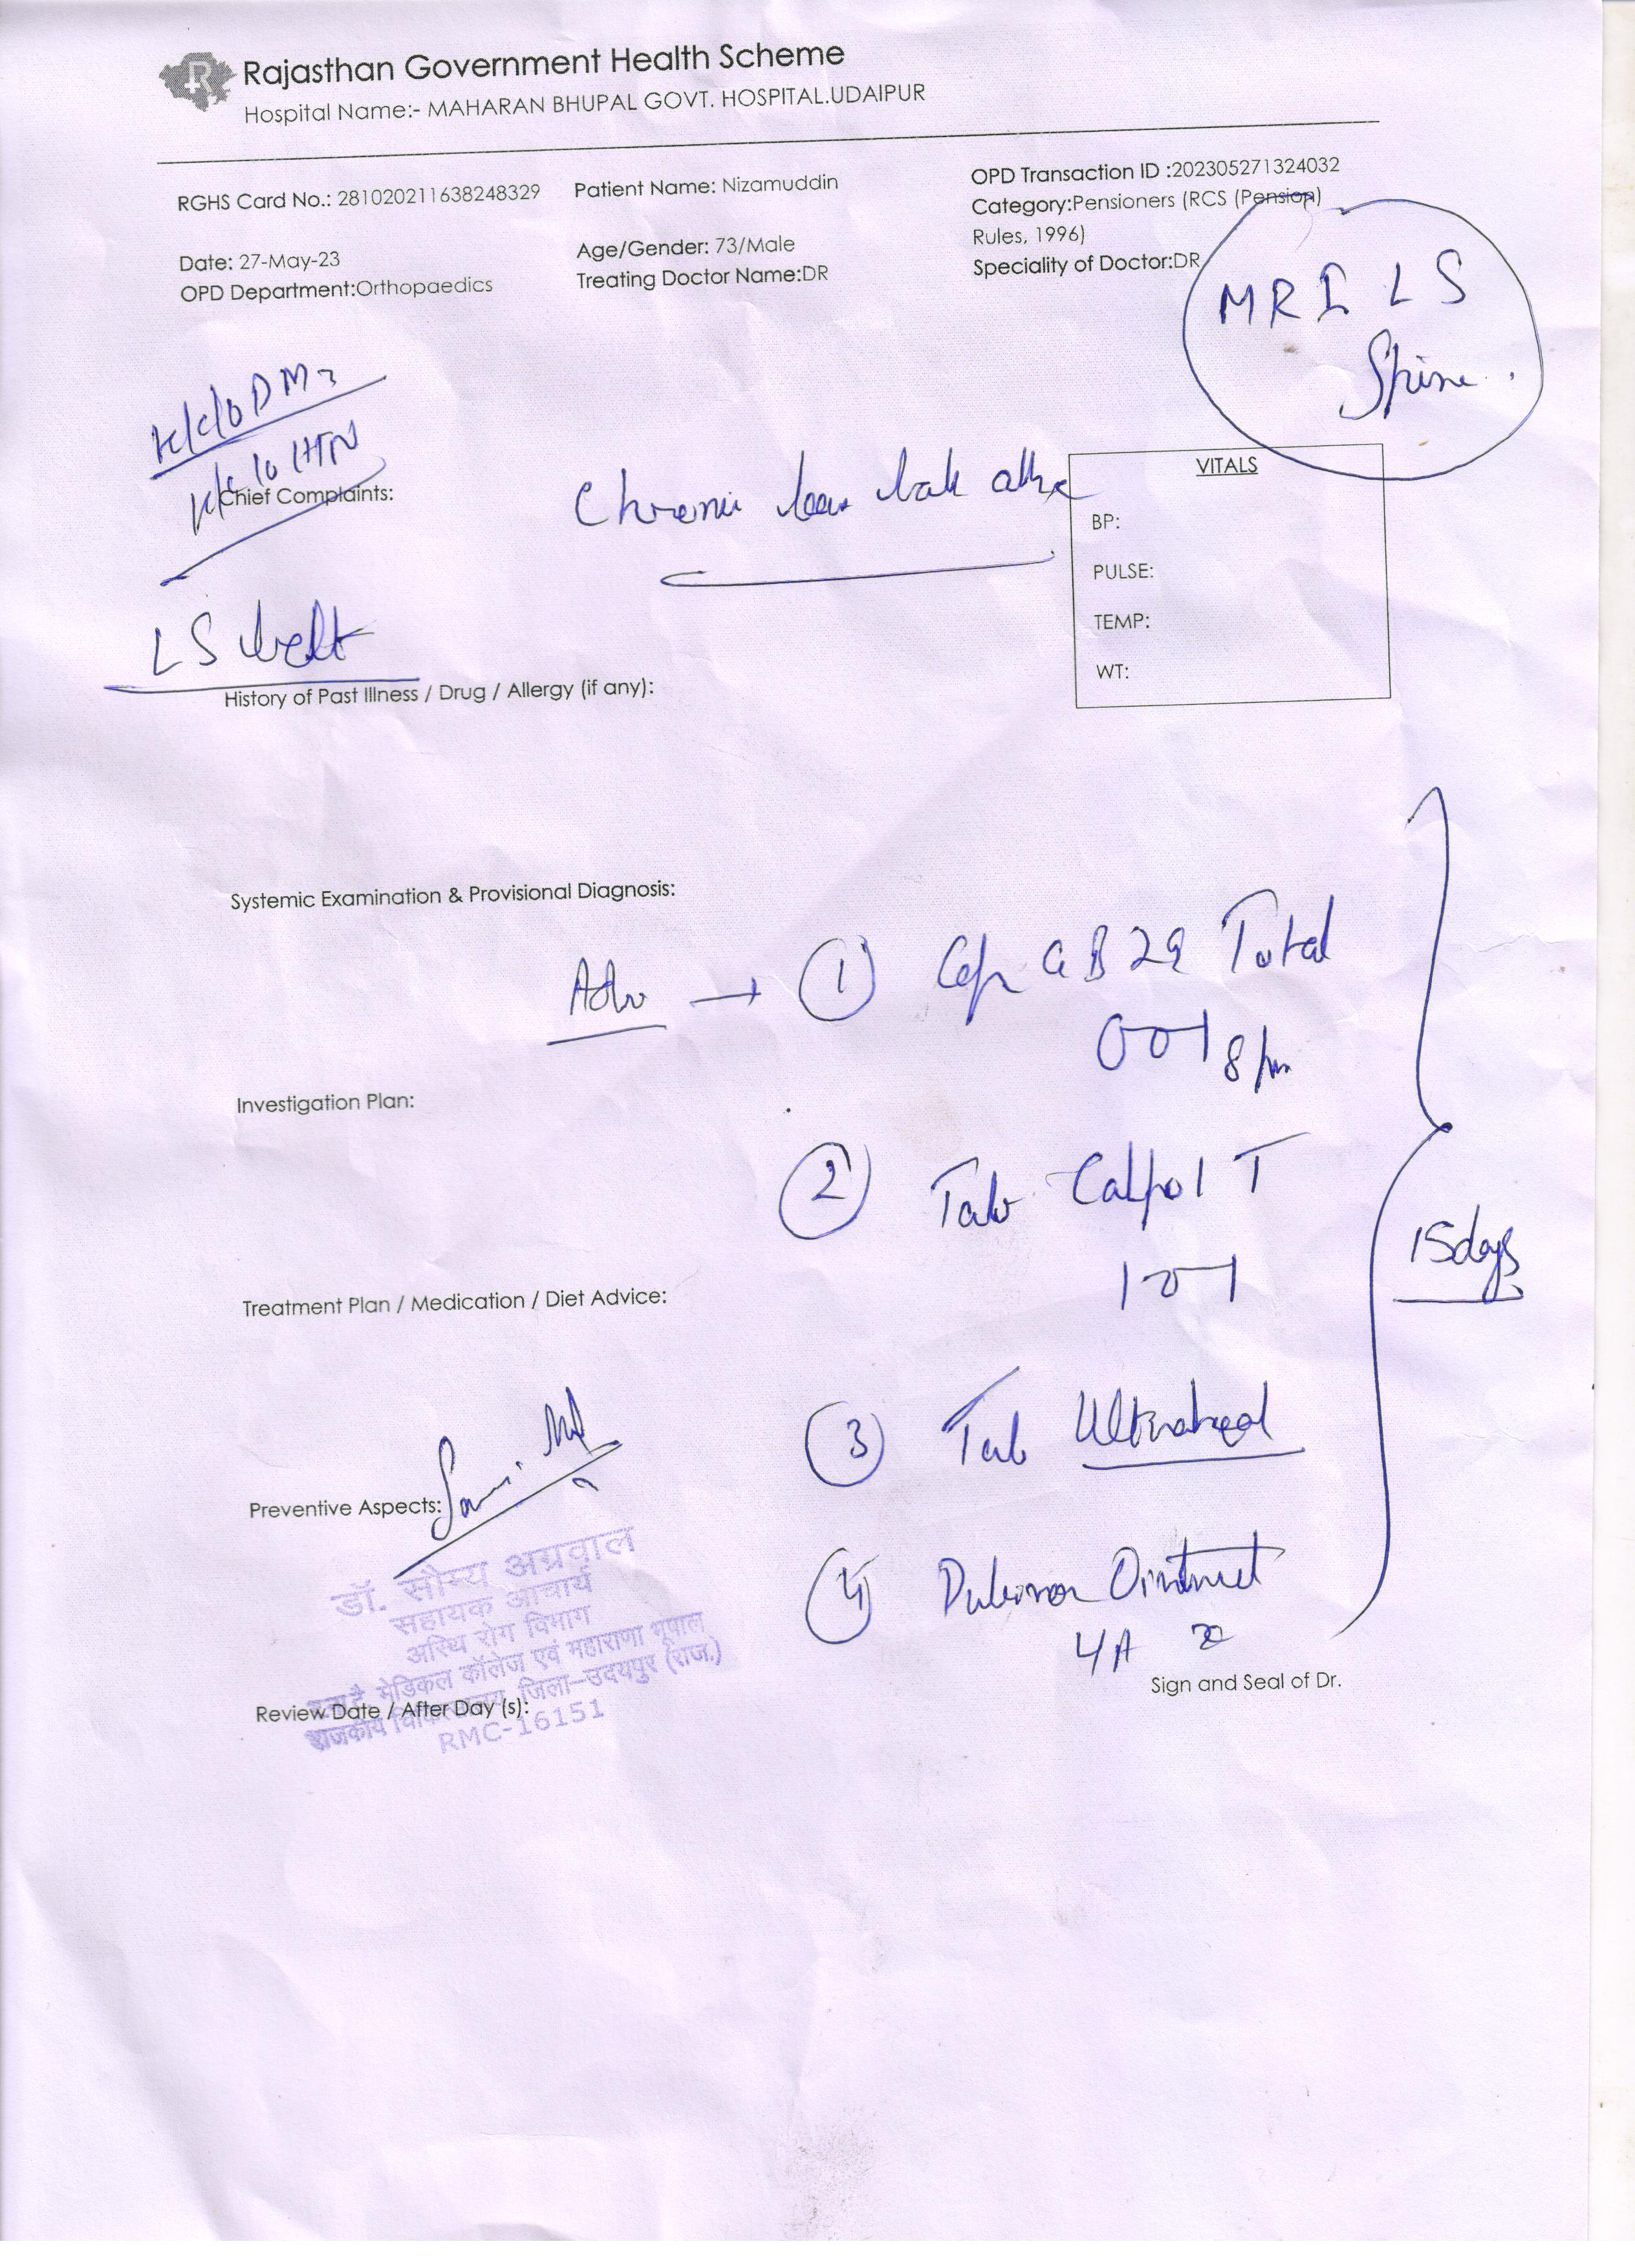 Rajasthan Government Health Scheme
Hospital Name:- MAHARAN BHUPAL GOVT. HOSPITAL.UDAIPUR
RGHS Card No.: 281020211638248329
Patient Name: Nizamuddin
OPD Transaction ID :202305271324032
Category:Pensioners (RCS (Pension)
Rules, 1996)
Date: 27-May-23
Age/Gender: 73/Male
Speciality of Doctor:DR
OPD Department:Orthopaedics
Treating Doctor Name:DR
MRI LS
Spine.
K/c/o DM
K/c/o HTN
Chief Complaints:
Chronic low back
VITALS
BP:
PULSE:
TEMP:
WT:
LS belt
History of Past Illness / Drug / Allergy (if any):
Systemic Examination & Provisional Diagnosis:
Adv → 1 Cap GB 29 Total
0 0 1 8 pm
Investigation Plan:
2 Tab Calpol T
1 0 1
15 days
Treatment Plan / Medication / Diet Advice:
3 Tab
Preventive Aspects:
डॉ. सौम्य अग्रवाल
सहायक आचार्य
अस्थि रोग विभाग
मेडिकल कॉलेज एवं महाराणा भूपाल
राजकीय जिला–उदयपुर (राज.)
RMC-16151
4 Ointment
Sign and Seal of Dr.
Review Date / After Day (s):